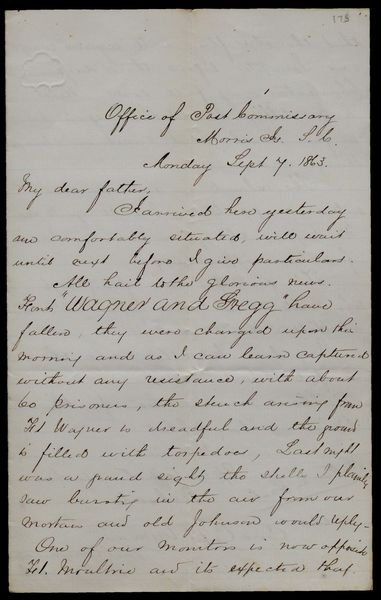 178
Office of Post Commissary
Morris Is. S. C.
Monday Sept 7. 1863.
My dear father,
I arrived here yesterday
am comfortably situated, will wait
until next before I give particulars.
All hail to the glorious news.
Forts "Wagner and Gregg" have
fallen, they were charged upon this
morning and as I can learn captured
without any resistance, with about
60 prisoners, the stench arising from
Ft Wagner is dreadful and the ground
is filled with torpedoes, Last night
was a grand sight the shells I plainly
saw bursting in the air from our
mortars and old Johnson would reply-
One of our monitors is now opposite
Ft. Moultrie and its expected they